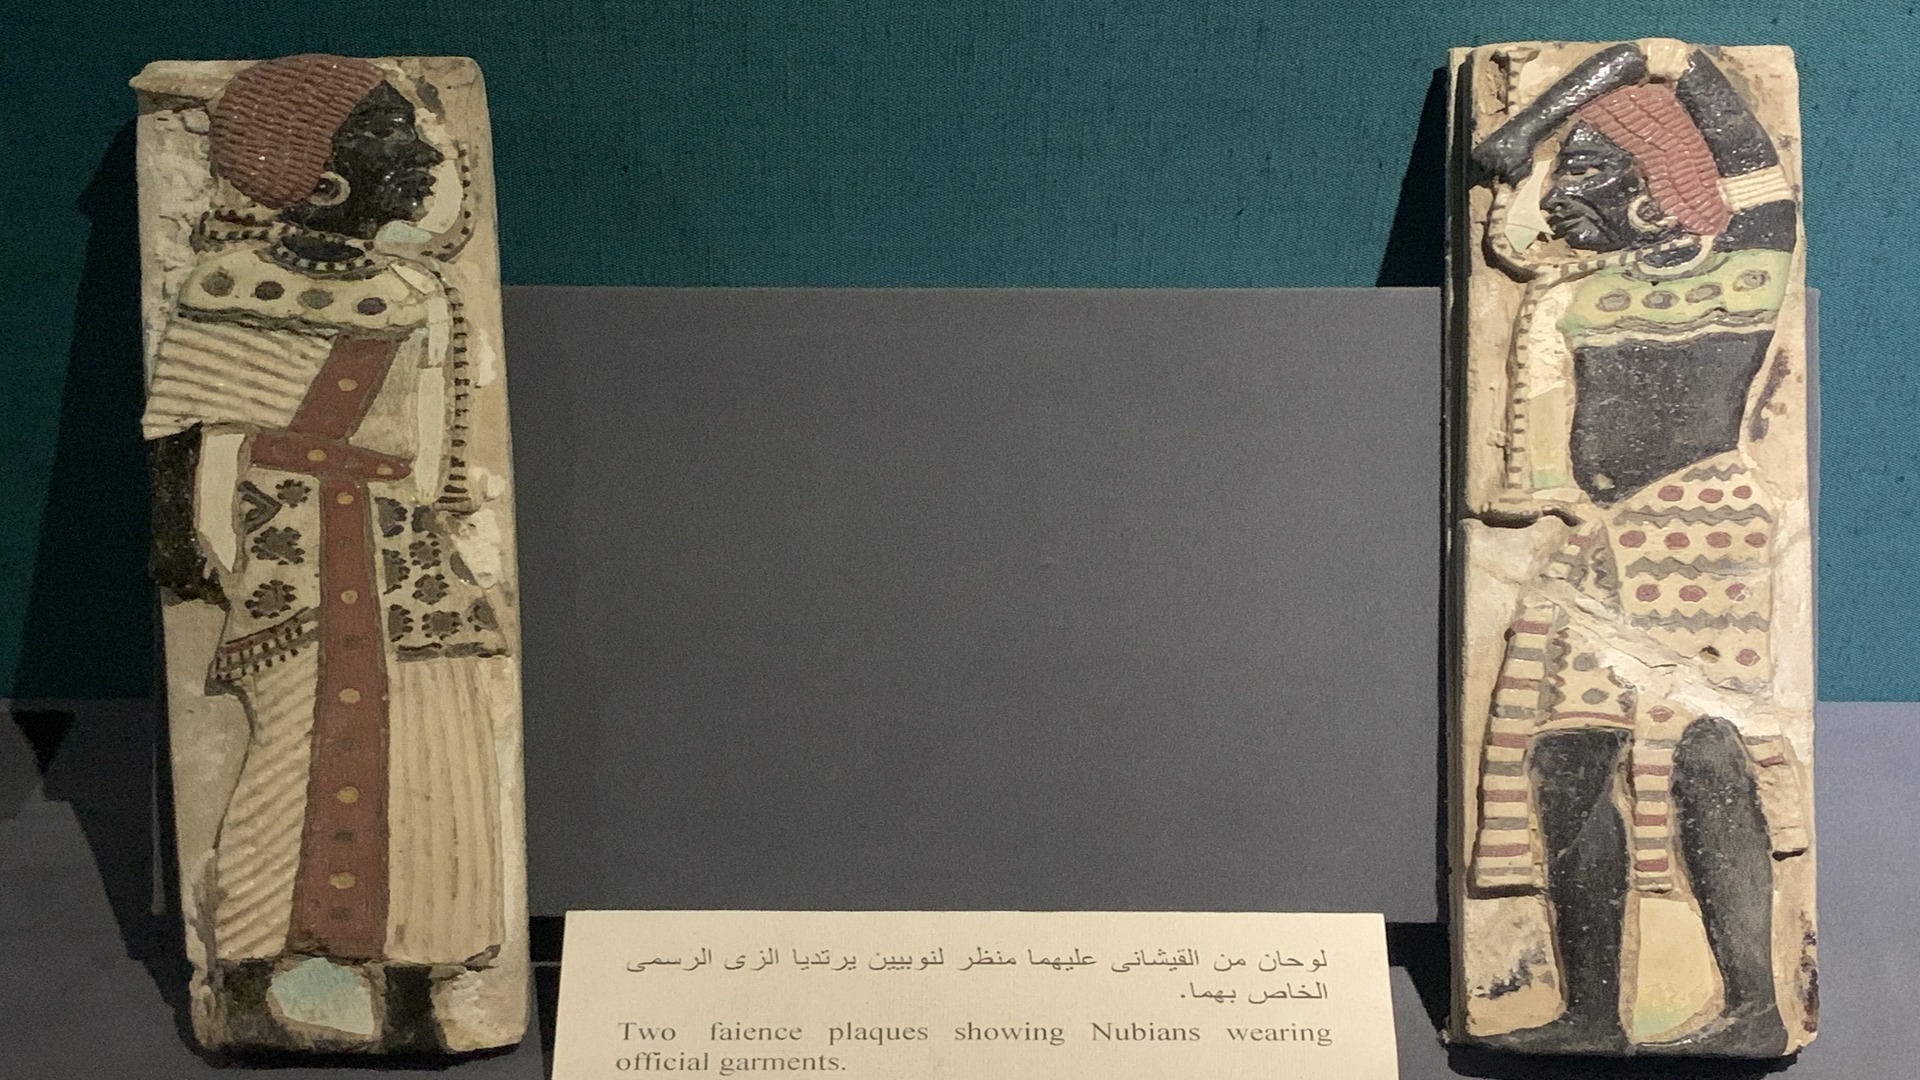 لوحان من القيشانى عليهما منظر لنوبيين يرتديا الزى الرسمى
الخاص بهما.
Two faience plaques showing Nubians wearing
official garments.